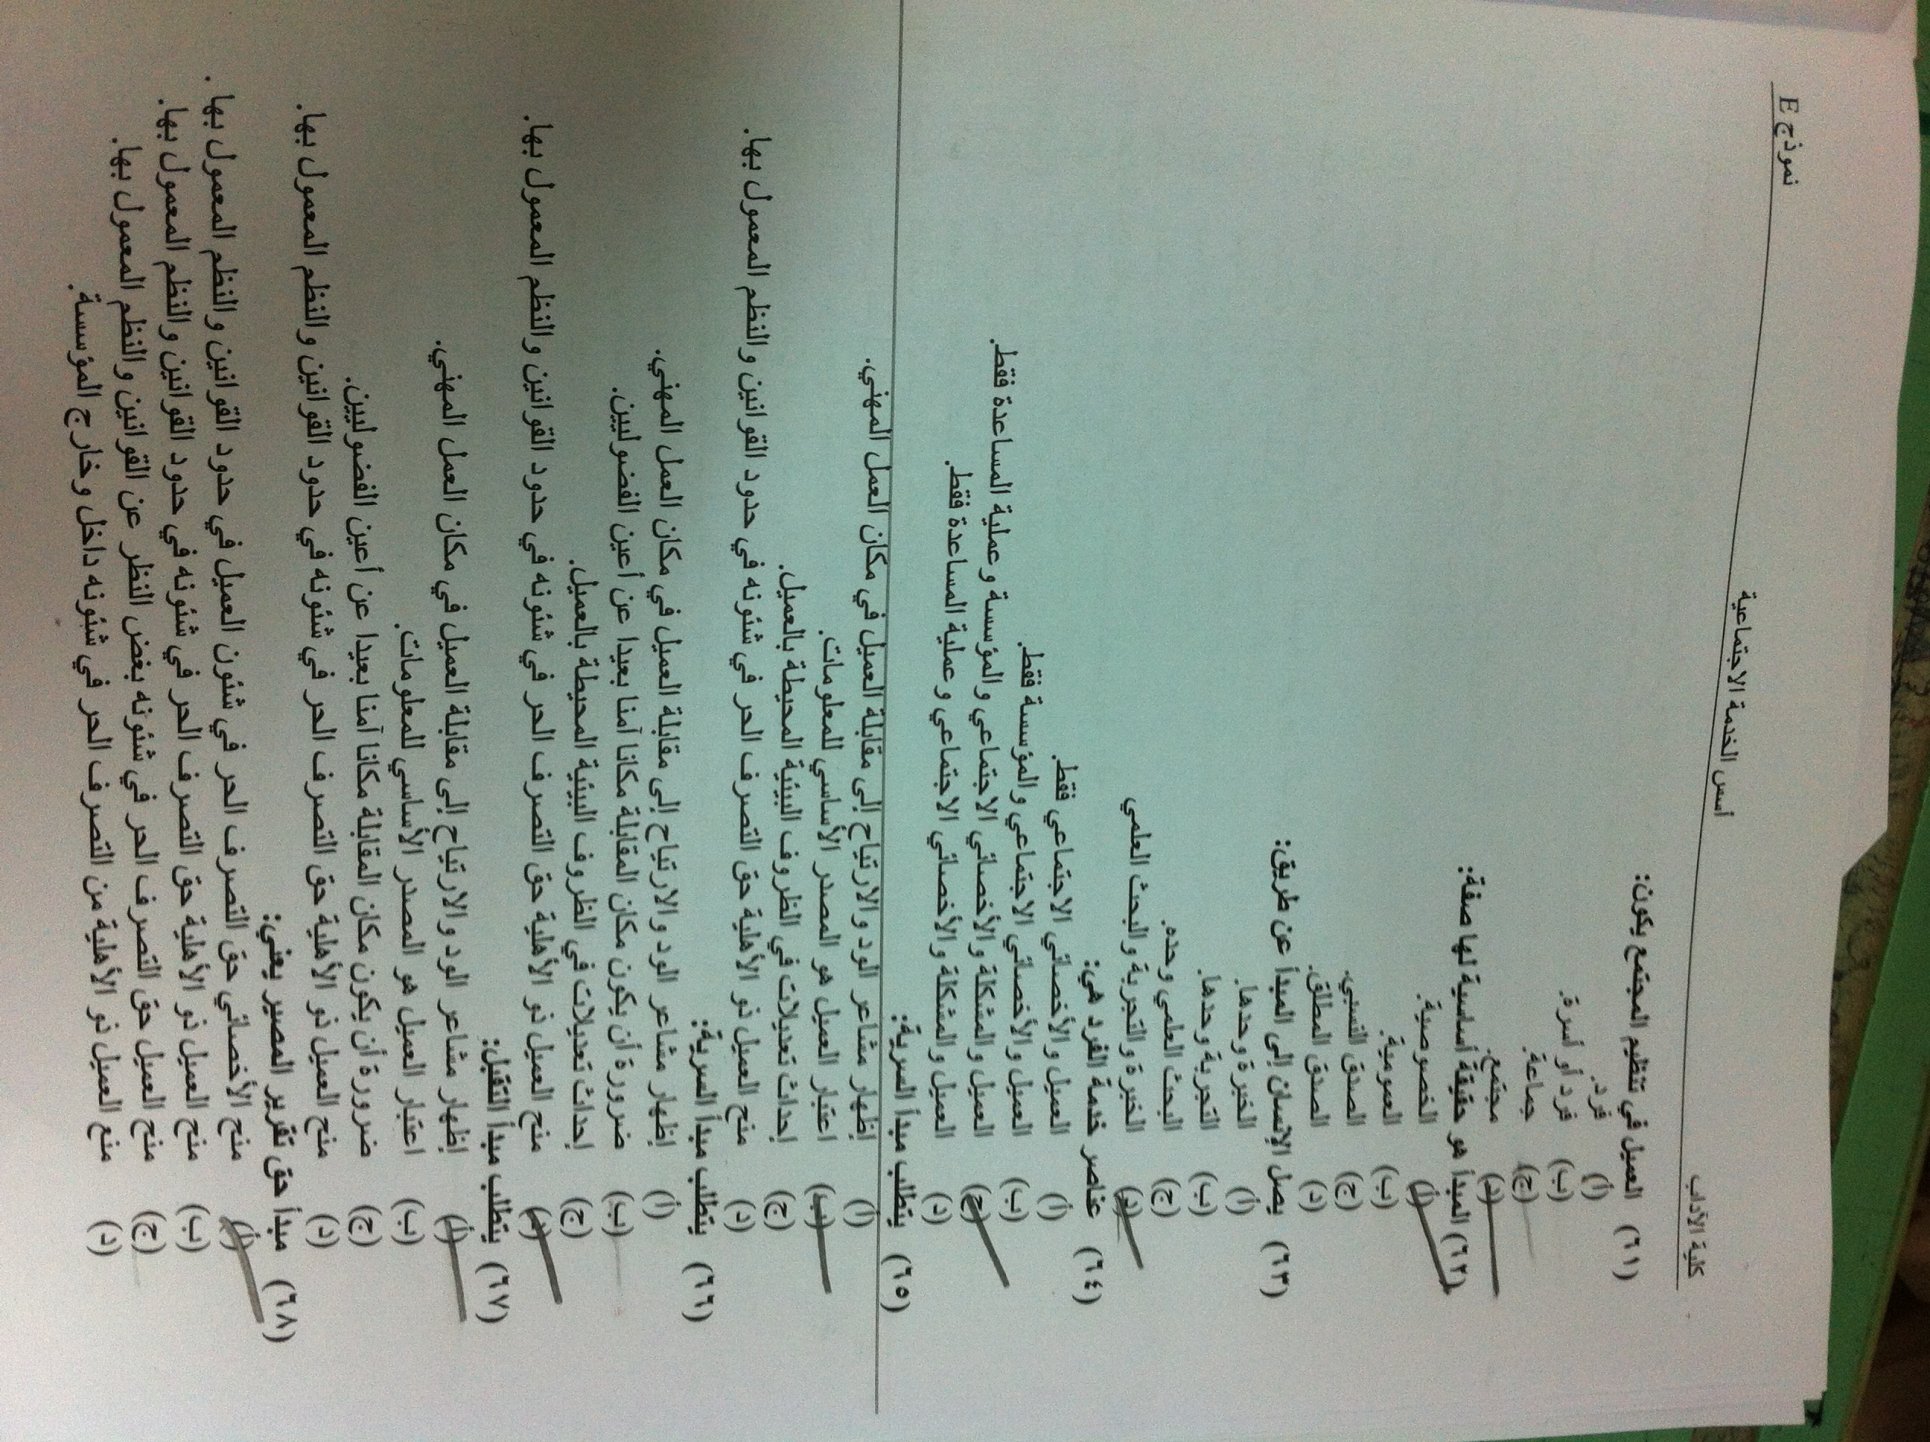 نموذج E
كلية الآداب أسس الخدمة الاجتماعية
(٦١) العميل في تنظيم المجتمع يكون:
(أ) فرد.
(ب) فرد أو أسرة.
(ج) جماعة.
(د) مجتمع.
(٦٢) المبدأ هو حقيقة أساسية لها صفة:
(أ) الخصوصية.
(ب) العمومية.
(ج) الصدق النسبي.
(د) الصدق المطلق.
(٦٣) يصل الإنسان إلى المبدأ عن طريق:
(أ) الخبرة وحدها.
(ب) التجربة وحدها.
(ج) البحث العلمي وحده.
(د) الخبرة والتجربة والبحث العلمي
(٦٤) عناصر خدمة الفرد هي:
(أ) العميل والأخصائي الاجتماعي فقط.
(ب) العميل والأخصائي الاجتماعي والمؤسسة فقط.
(ج) العميل والمشكلة والأخصائي الاجتماعي والمؤسسة وعملية المساعدة فقط.
(د) العميل والمشكلة والأخصائي الاجتماعي وعملية المساعدة فقط.
(٦٥) يتطلب مبدأ السرية:
(أ) إظهار مشاعر الود والارتياح إلى مقابلة العميل في مكان العمل المهني.
(ب) اعتبار العميل هو المصدر الأساسي للمعلومات.
(ج) إحداث تعديلات في الظروف البيئية المحيطة بالعميل.
(د) منح العميل ذو الأهلية حق التصرف الحر في شئونه في حدود القوانين والنظم المعمول بها.
(٦٦) يتطلب مبدأ السرية:
(أ) إظهار مشاعر الود والارتياح إلى مقابلة العميل في مكان العمل المهني.
(ب) ضرورة أن يكون مكان المقابلة مكانا آمنا بعيدا عن أعين الفضوليين.
(ج) إحداث تعديلات في الظروف البيئية المحيطة بالعميل.
(د) منح العميل ذو الأهلية حق التصرف الحر في شئونه في حدود القوانين والنظم المعمول بها.
(٦٧) يتطلب مبدأ التقبل:
(أ) إظهار مشاعر الود والارتياح إلى مقابلة العميل في مكان العمل المهني.
(ب) اعتبار العميل هو المصدر الأساسي للمعلومات.
(ج) ضرورة أن يكون مكان المقابلة مكانا آمنا بعيدا عن أعين الفضوليين.
(د) منح العميل ذو الأهلية حق التصرف الحر في شئونه في حدود القوانين والنظم المعمول بها.
(٦٨) مبدأ حق تقرير المصير يعني:
(أ) منح الأخصائي حق التصرف الحر في شئون العميل في حدود القوانين والنظم المعمول بها.
(ب) منح العميل ذو الأهلية حق التصرف الحر في شئونه في حدود القوانين والنظم المعمول بها.
(ج) منح العميل حق التصرف الحر في شئونه بغض النظر عن القوانين والنظم المعمول بها.
(د) منع العميل ذو الأهلية من التصرف الحر في شئونه داخل وخارج المؤسسة.